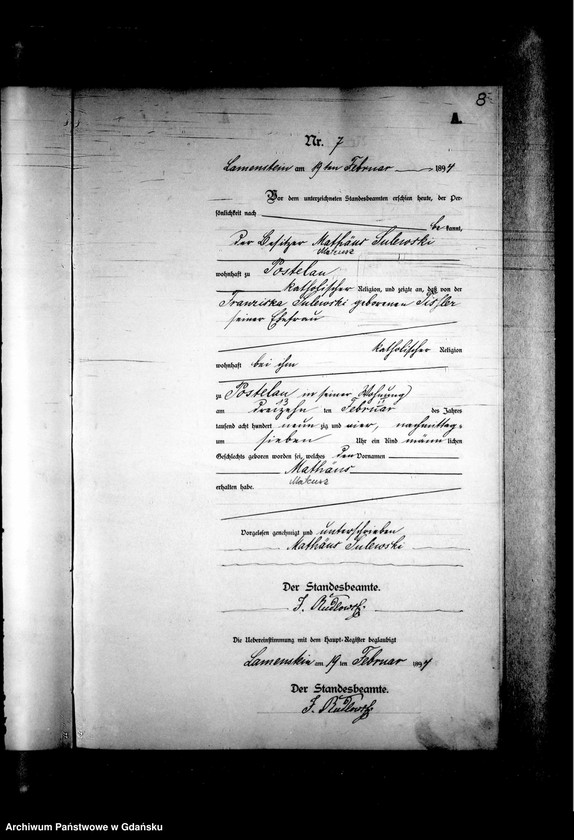 8
A.
Nr. 7
Lamenstein am 19 ten Februar 1894
Vor dem unterzeichneten Standesbeamten erschien heute, der Per-
sönlichkeit nach be kannt,
der Besitzer Mathäus Sulewski
wohnhaft zu Postelau
katholischer Religion, und zeigte an, daß von der
Franziska Sulewski geborenen
seiner Ehefrau
katholischer Religion
wohnhaft bei ihm
zu Postelau in seiner Wohnung
13
am dreizehn ten Februar des Jahres
tausend acht hundert neun zig und vier, nachmittag s
um sieben Uhr ein Kind männ lichen
Geschlechts geboren worden sei, welches den Vornamen
Mathäus
erhalten habe.
Vorgelesen genehmigt und unterschrieben
Mathäus Sulewski
Der Standesbeamte.
Die Uebereinstimmung mit dem Haupt-Register beglaubigt
Lamenstein am 19 ten Februar 1894
Der Standesbeamte.
Archiwum Państwowe w Gdańsku